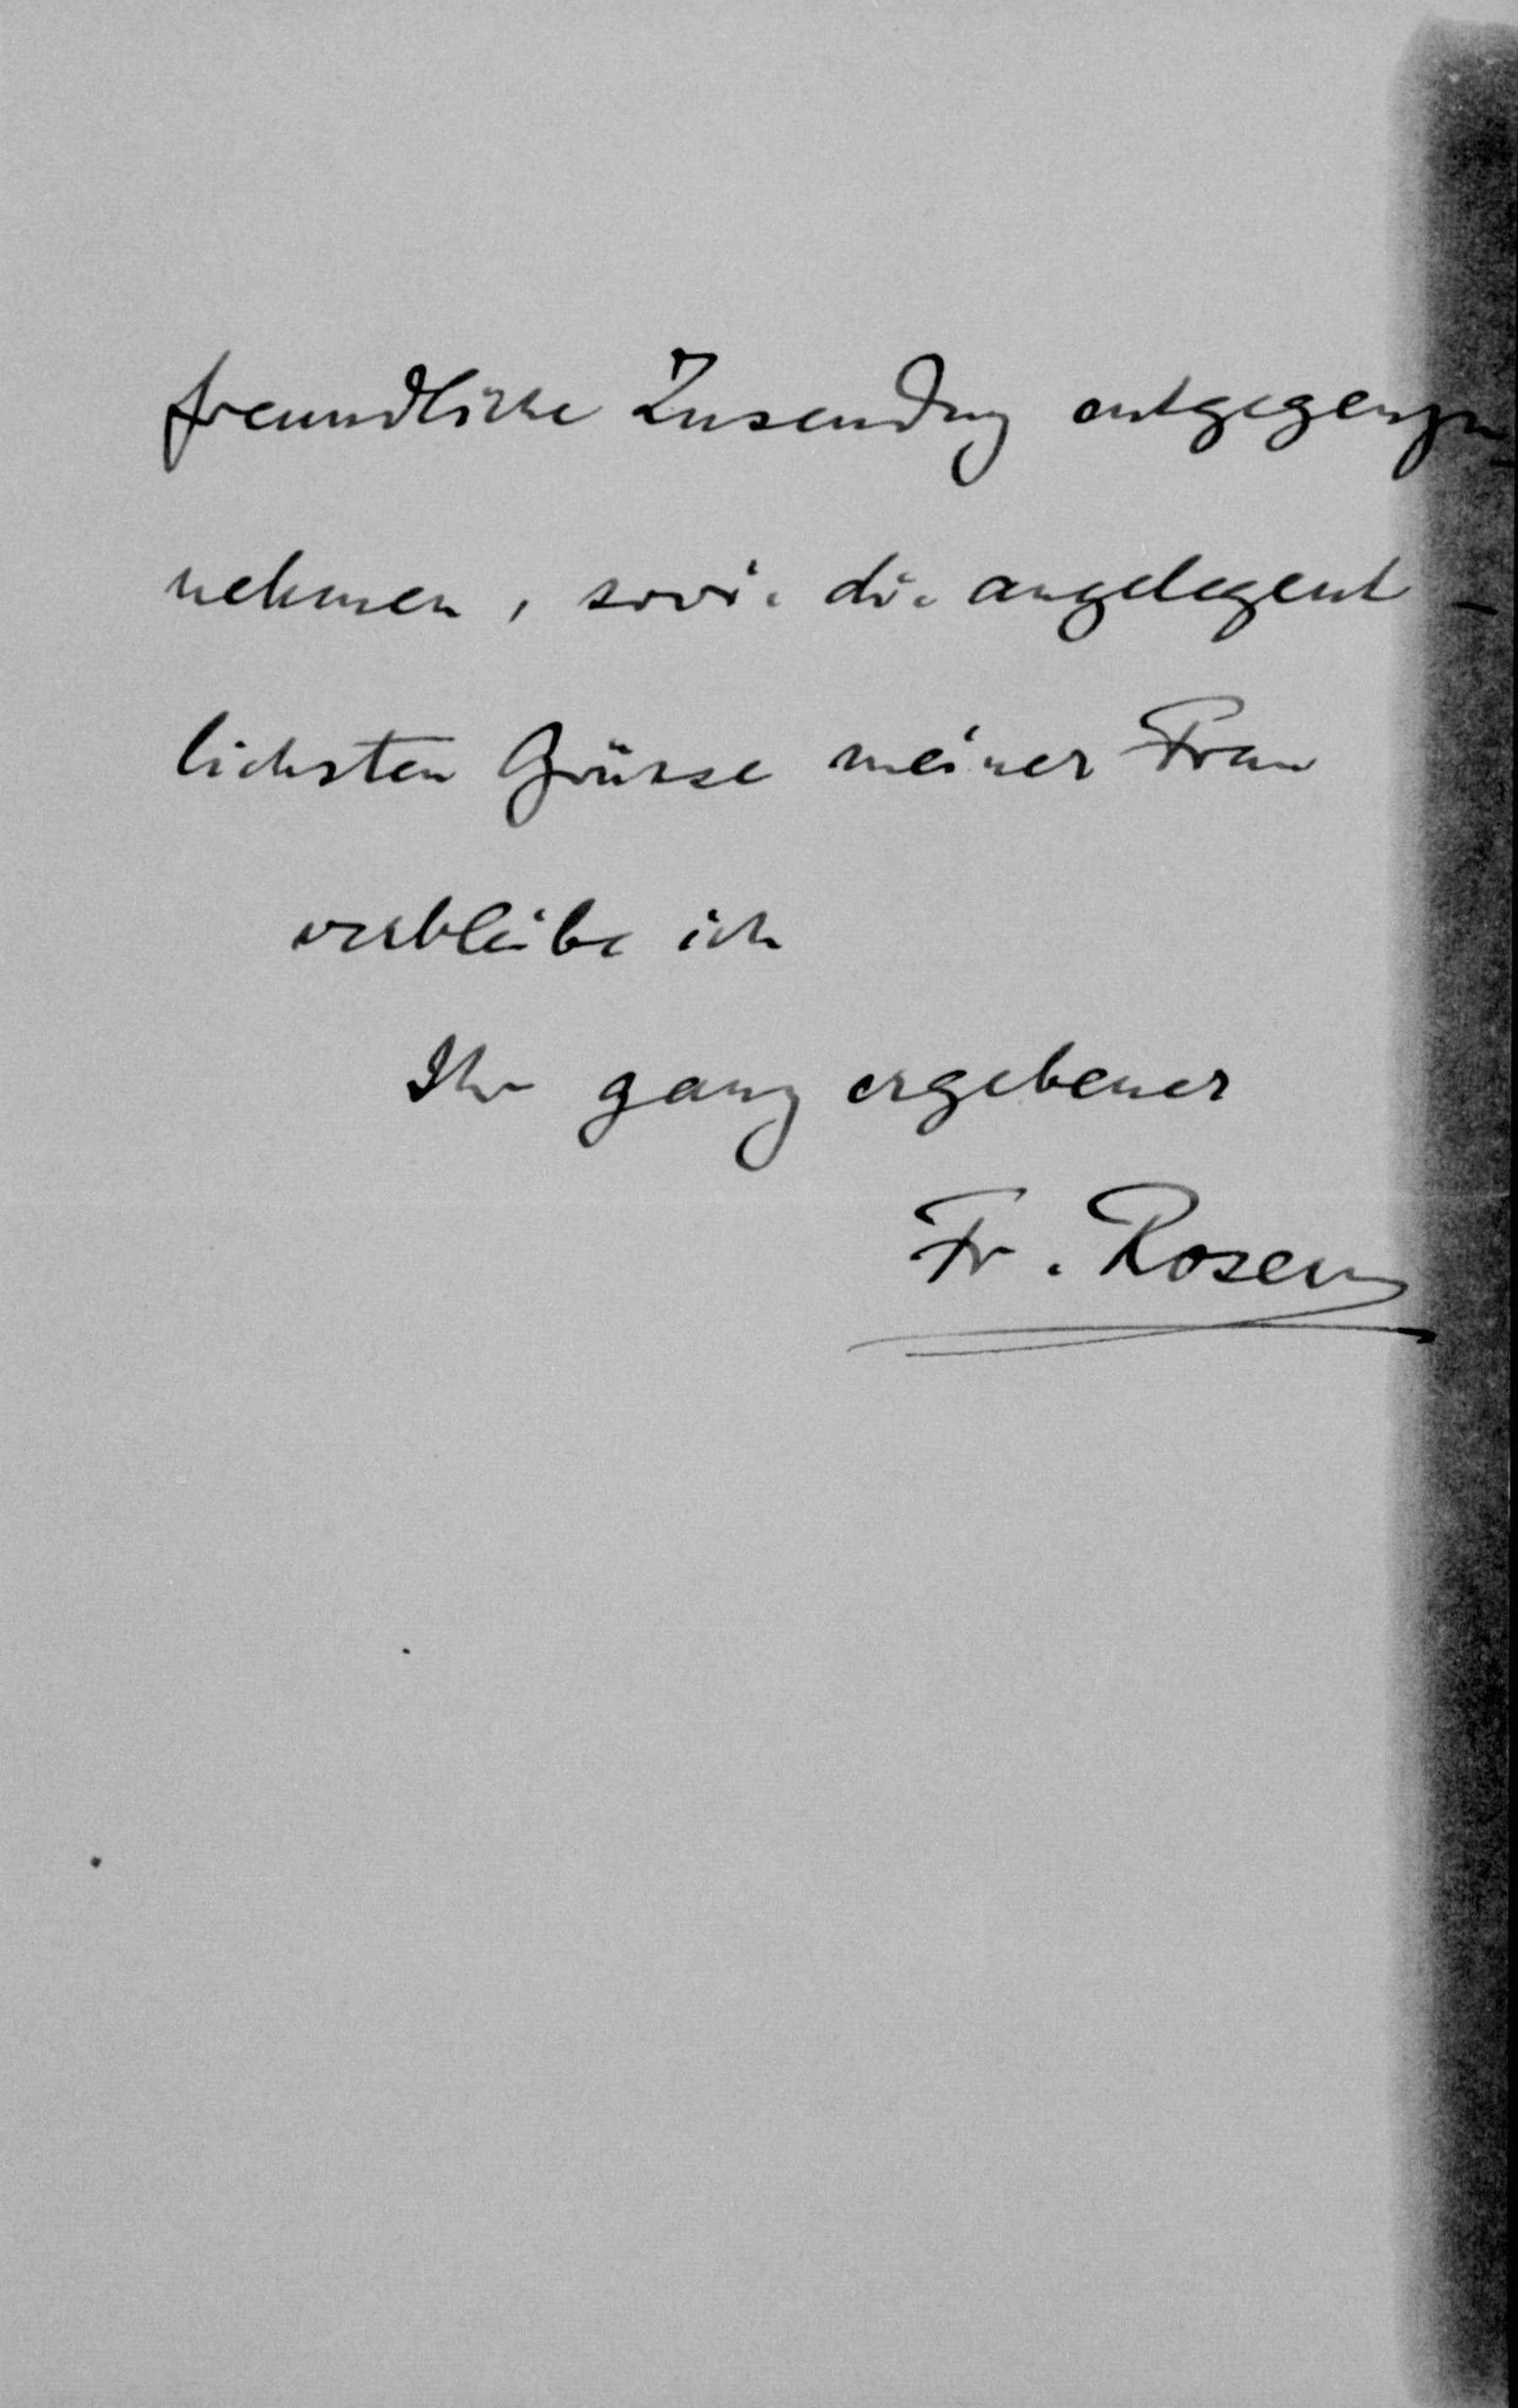 freundliche Zusendung entgegenzu-
nehmen, sowie die angelegent-
lichsten Grüsse meiner Frau
verbleibe ich
Ihr ganz ergebener
Fr. Rosen